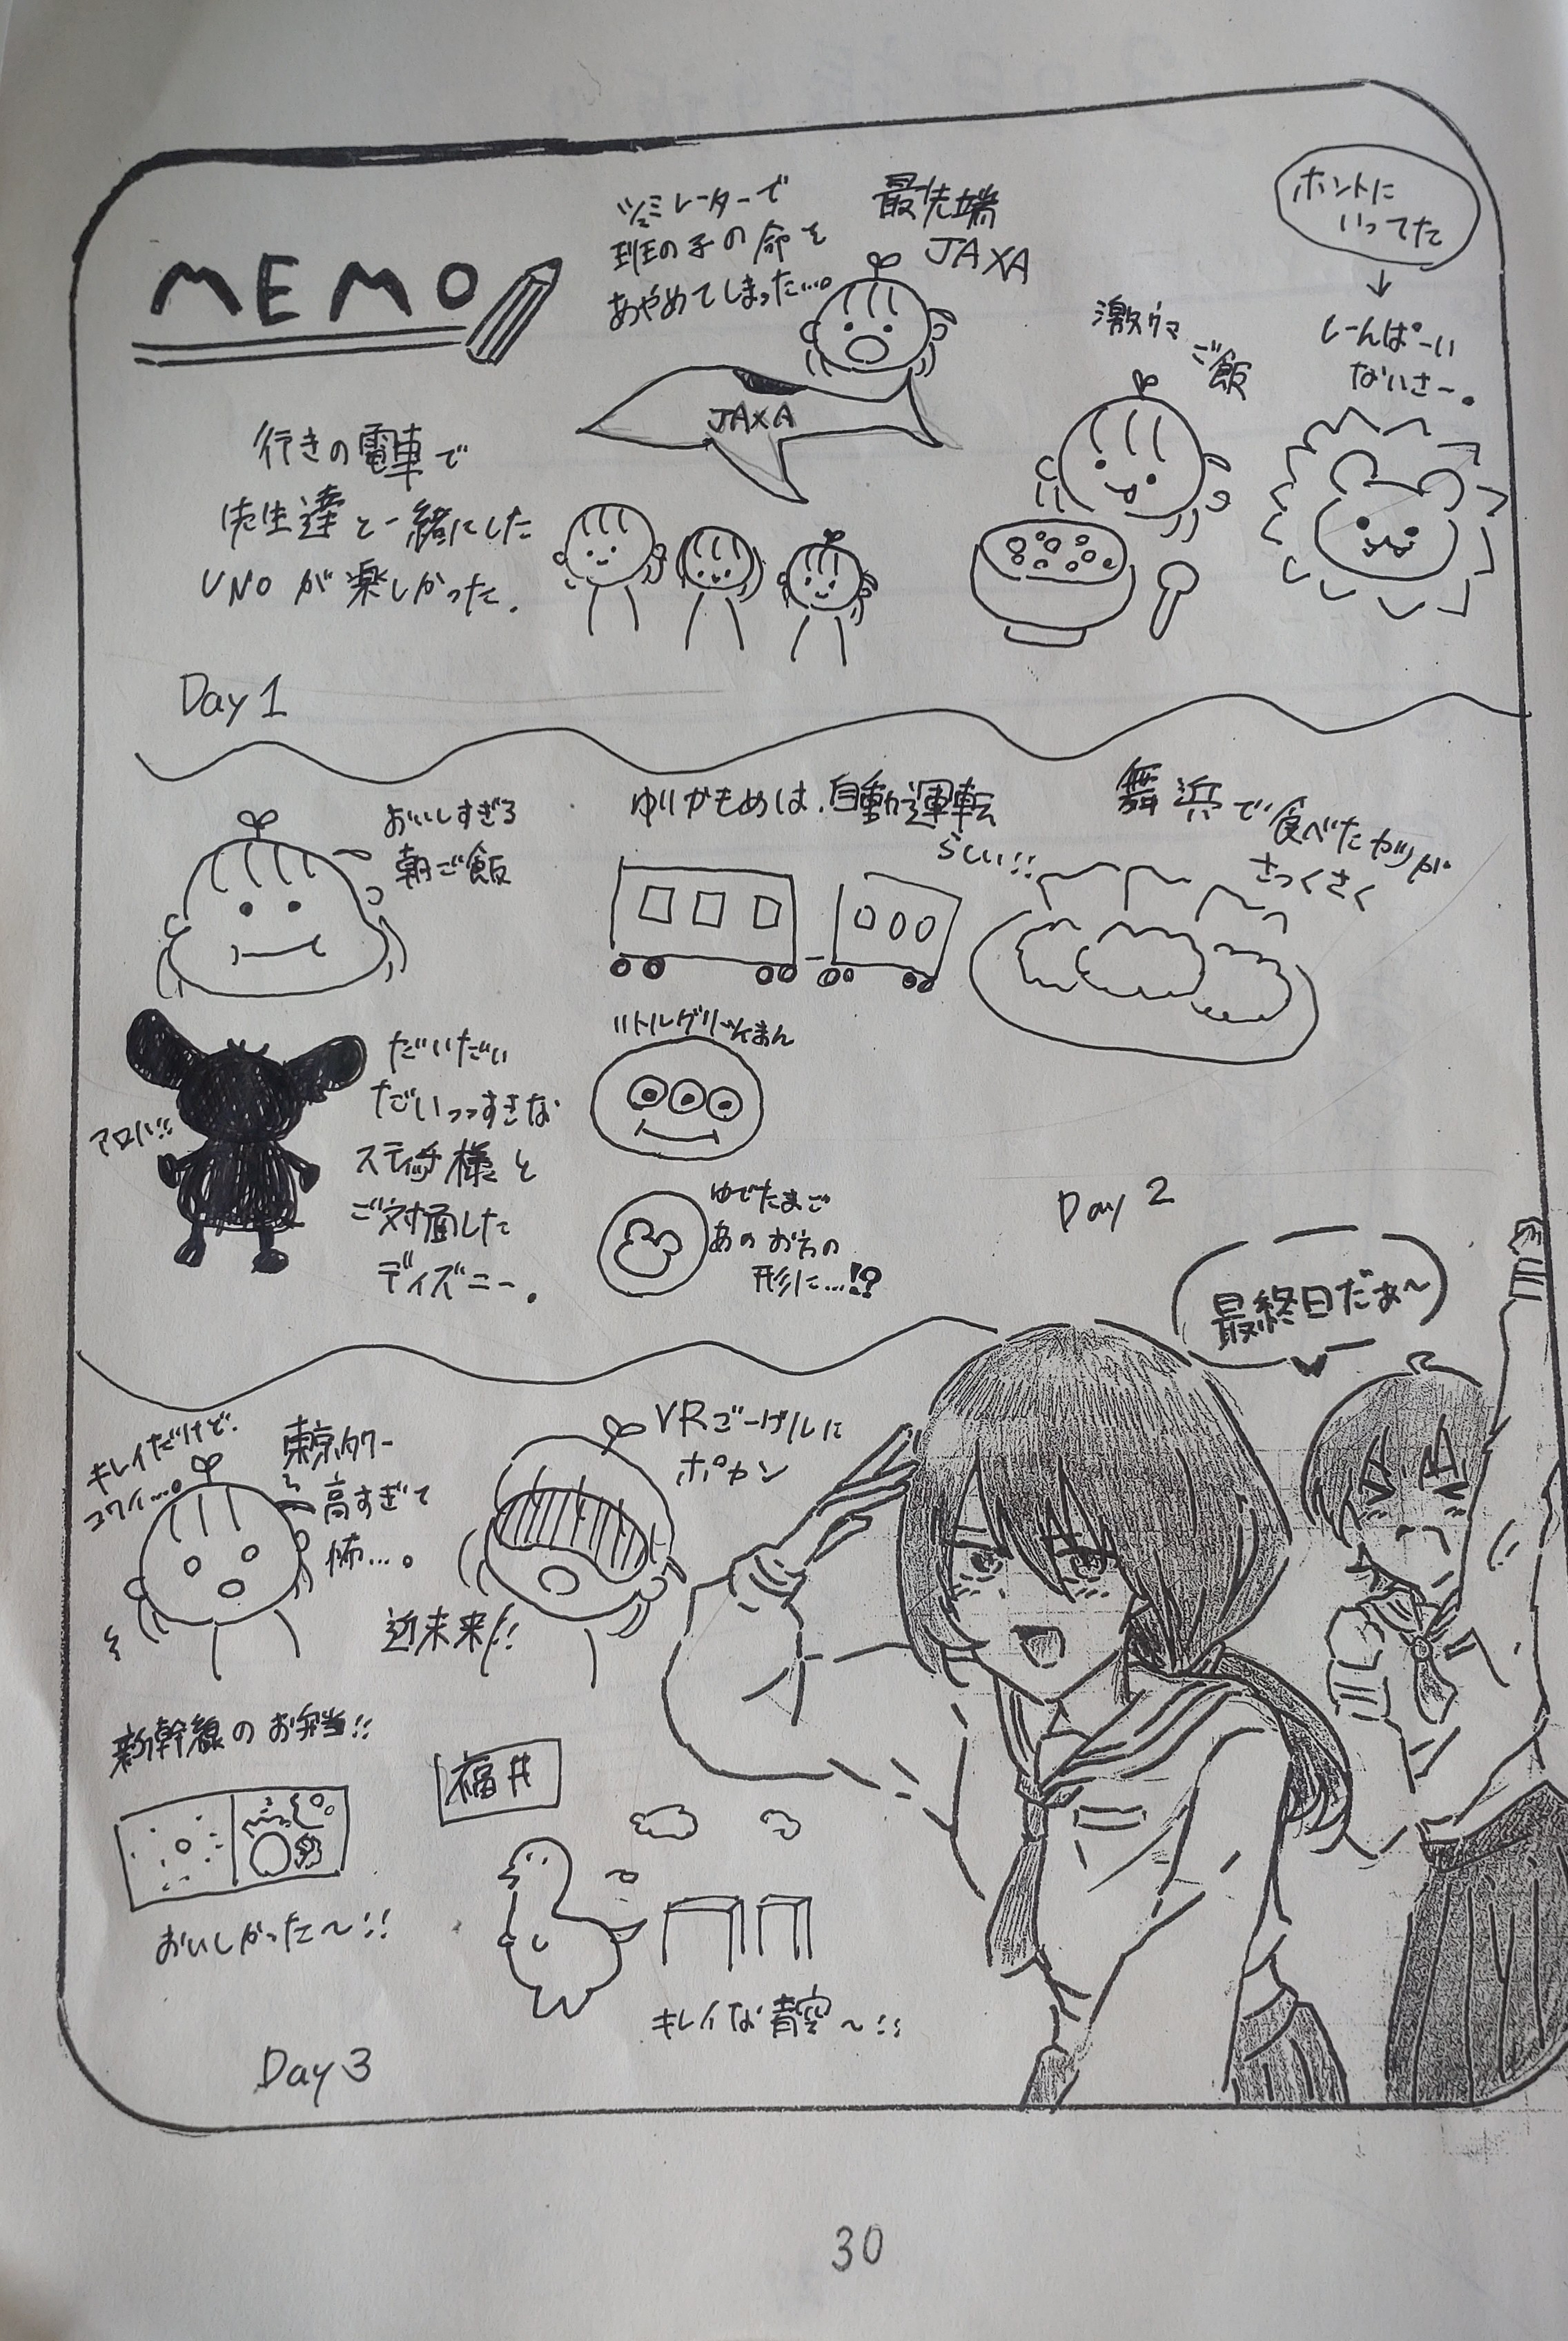 MEMO
シュミレーターで
班の子の命を
あやめてしまった…。
最先端
JAXA
JAXA
ホントに
いってた
↓
しーんぱーい
ないさー。
激ウマ
ご飯
行きの電車で
先生達と一緒にした
UNOが楽しかった.
Day 1
おいしすぎる
朝ご飯
ゆりかもめは、自動運転
らしい!!
舞浜で食べたカツが
さっくさく
アロハ!!
だいだい
だいっっすきな
スティッチ様と
ご対面した
ディズニー。
リトルグリーンまん
ゆでたまご
あのお方の
形に…!?
Day 2
最終日だぁ〜
キレイだけど.
コワイ…。
東京タワー
高すぎて
怖…。
VRごーグルに
ポカン
近未来!!
新幹線のお弁当!!
おいしかった〜!!
福井
キレイな青空〜!!
Day 3
30